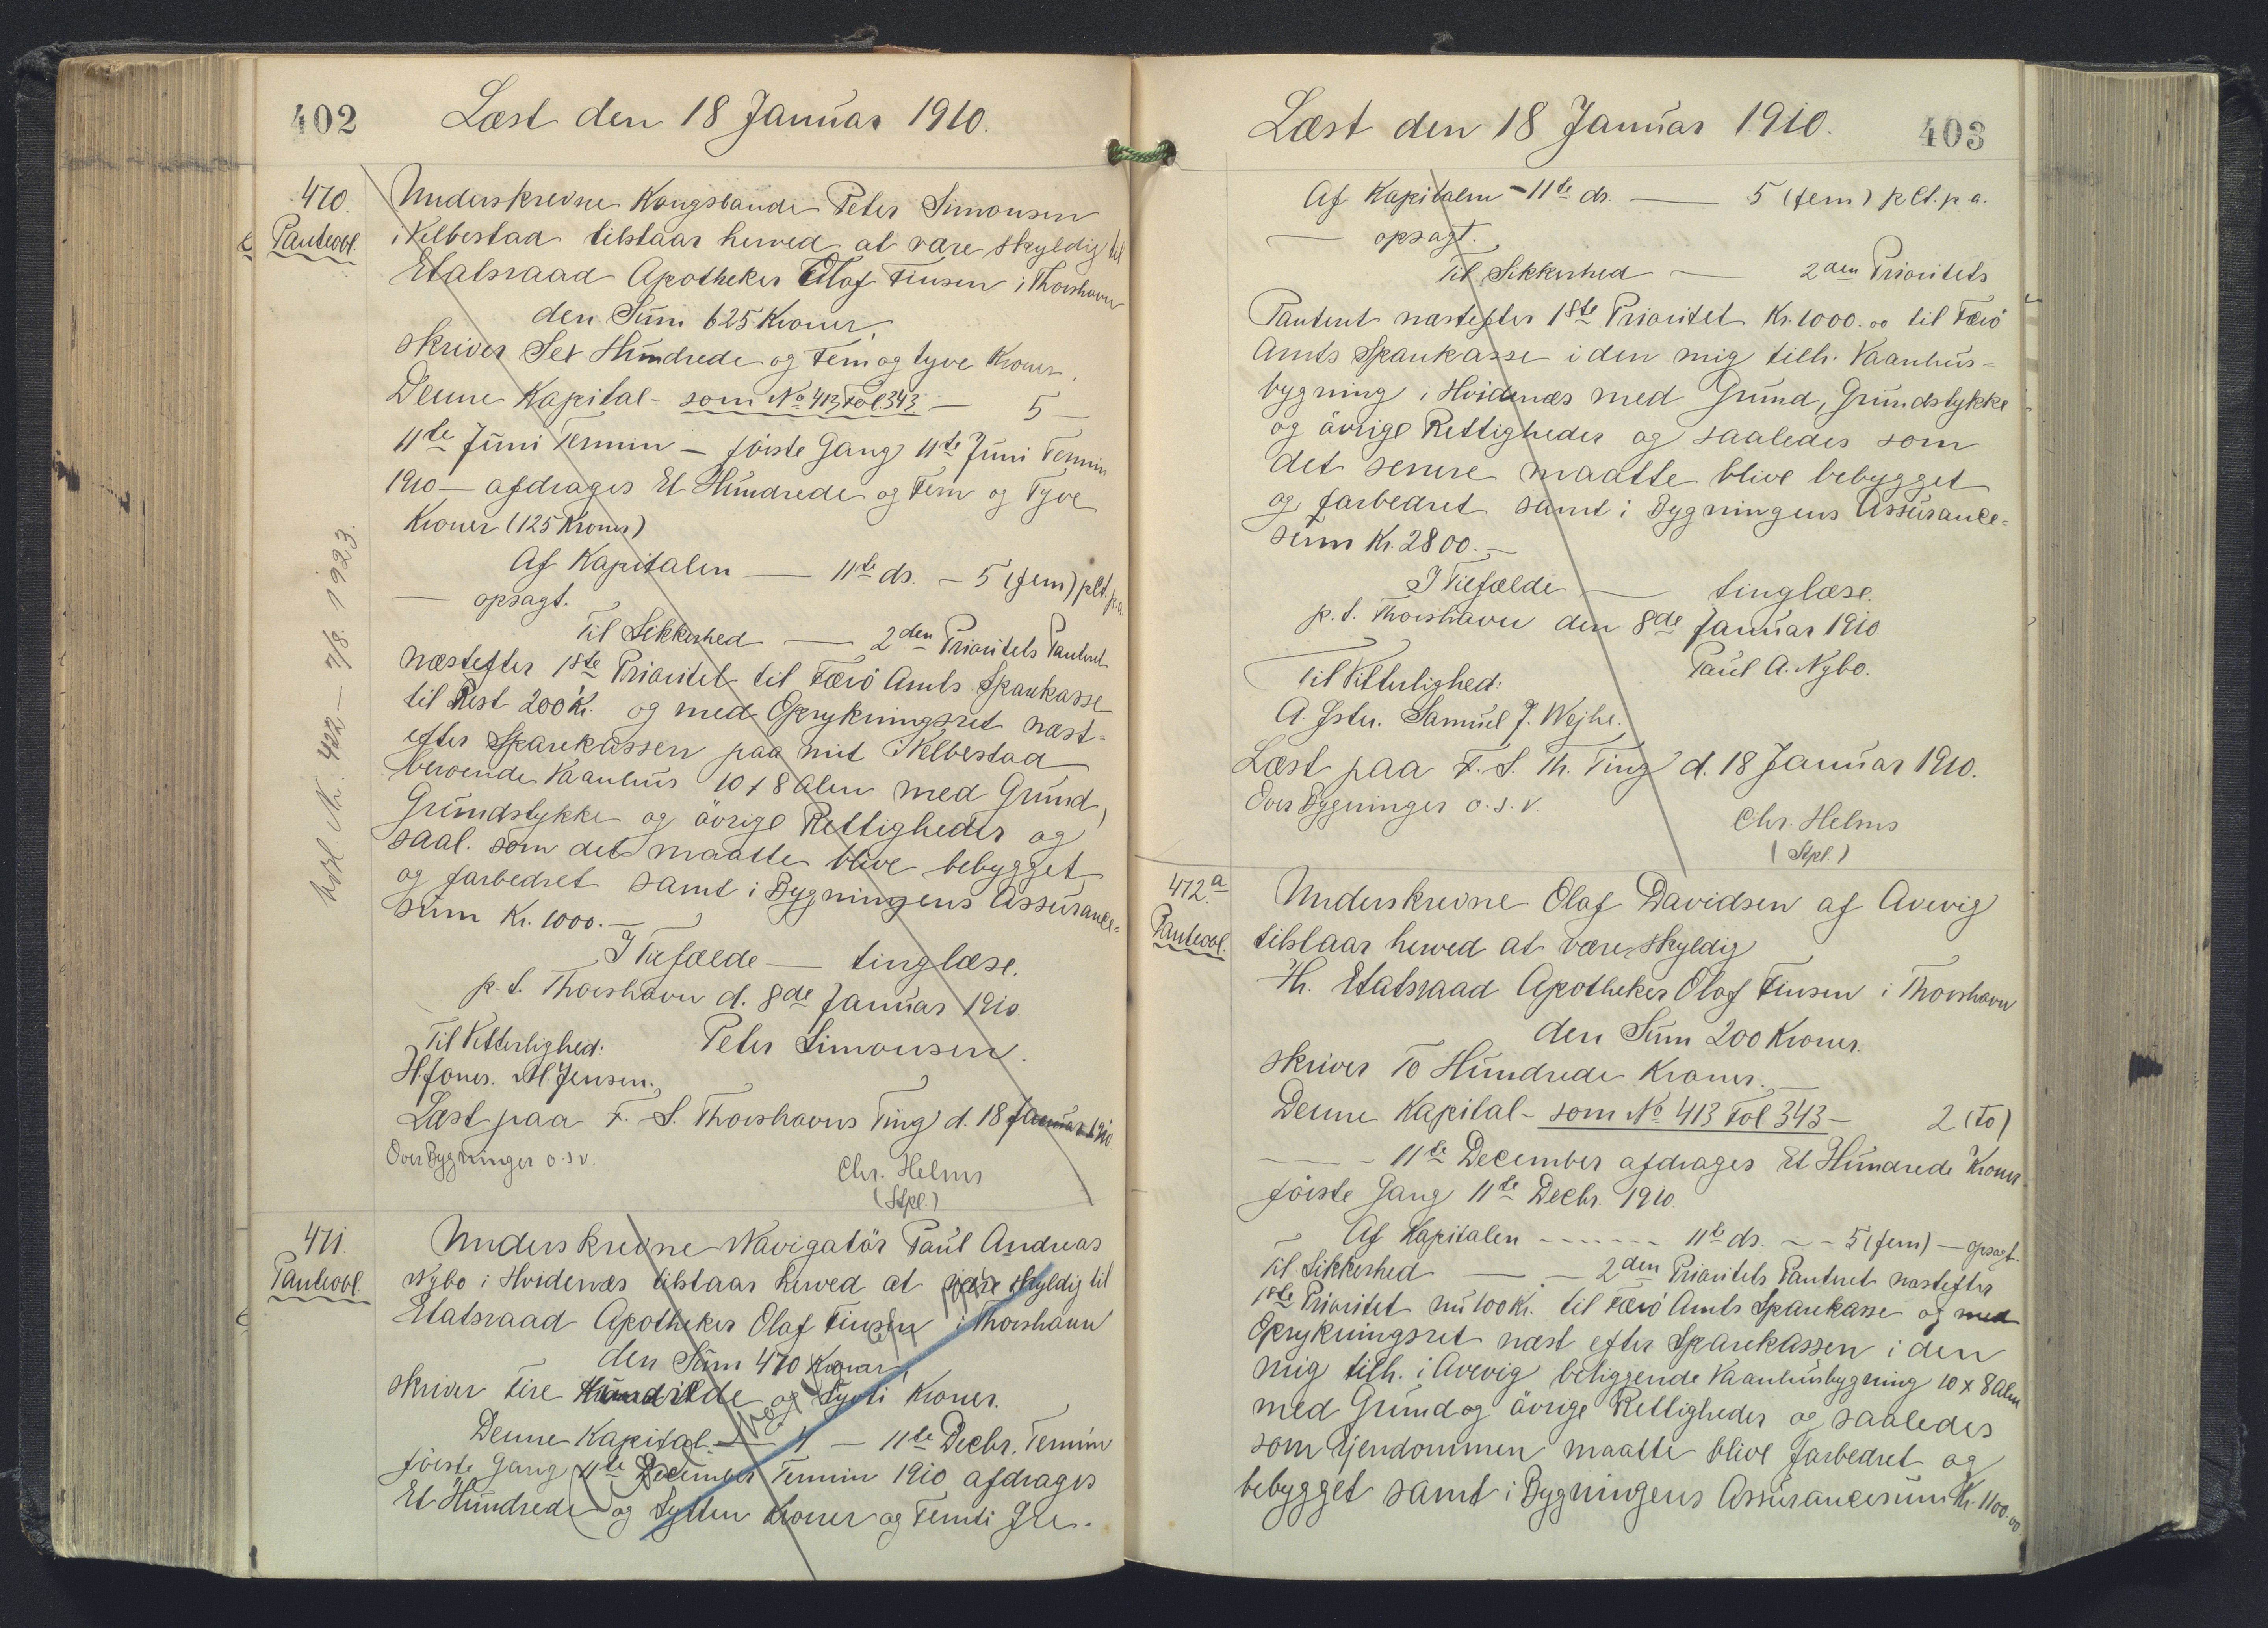 402
Læst den 18 Januar 1910.
470.
Panteobl.
Underskrevne Kongsbonde Peter Simonsen
i Velbestad tilstaar herved at være skyldig til
Etatsraad Apotheker Olaf Finsen i Thorshavn
den Sum 625 Kroner
skriver Sex Hundrede og Fem og tyve Kroner.
Denne Kapital - som No 413 Fol 343 - 5 -
11te Juni Termin - förste Gang 11te Juni Termin
1910 - afdrages Et Hundrede og Fem og Tyve
Kroner (125 Kroner)
Af Kapitalen - 11te ds. - 5 (fem) pCt. p.a.
- opsagt.
Til Sikkerhed - 2den Prioritets Panteret
næstefter 1ste Prioritet til Færö Amts Sparekasse
til Rest 200 Kr. og med Oprykningsret næst-
efter Sparekassen paa mit i Velbestad
beroende Vaanhus 10 x 8 Alen med Grund,
Grundstykke og övrige Rettigheder og
saal. som det maatte blive bebygget
og forbedret samt i Bygningens Assurance-
sum Kr. 1000. -
I Tilfælde - tinglæse.
p. t. Thorshavn d. 8de Januar 1910.
Til Vitterlighed: Peter Simonsen.
H. Joner. M. Jensen.
Læst paa F. S. Thorshavns Ting d. 18 Januar 1910.
Over Bygninger o.s.v.
Chr. Helms
(Stpl.)
Nr. 422 - 7/8. 1923.
471.
Panteobl.
Underskrevne Navigatör Paul Andreas
Nybo i Hvidenæs tilstaar herved at være skyldig til
Etatsraad Apotheker Olaf Finsen i Thorshavn
den Sum 470 Kroner
skriver Fire Hundrede og Sytti Kroner.
Denne Kapital - 4 - 11te Decbr. Termin
förste Gang 11te December Termin 1910 afdrages
Et Hundrede og Sytten Kroner og Femti Øre.
Læst den 18 Januar 1910.
403
Af Kapitalen - 11te ds. - 5 (fem) pCt. p a.
- opsagt.
Til Sikkerhed - 2den Prioritets
Panteret næstefter 1ste Prioritet Kr. 1000.00 til Færö
Amts Sparekasse i den mig tilh. Vaanhus-
bygning i Hvidenæs med Grund, Grundstykke
og övrige Rettigheder og saaledes som
det senere maatte blive bebygget
og forbedret samt i Bygningens Assurance-
sum Kr. 2800. -
I Tilfælde - tinglæse.
p. t. Thorshavn den 8de Januar 1910
Paul A. Nybo.
Til Vitterlighed:
A. Jster. Samuel J. Wejhe.
Læst paa F. S. Th. Ting d. 18 Januar 1910.
Over Bygninger o.s.v.
Chr. Helms
(Stpl.)
472.a
Panteobl.
Underskrevne Olaf Davidsen af Avevig
tilstaar herved at være skyldig
Hr. Etatsraad Apotheker Olaf Finsen i Thorshavn
den Sum 200 Kroner.
skriver To Hundrede Kroner. -
Denne Kapital - som No 413 Fol 343 - 2 (to)
- - 11te December afdrages Et Hundrede Kroner
förste Gang 11te Decbr. 1910.
Af Kapitalen - - - - - 11te ds. - - 5 (fem) - opsagt.
Til Sikkerhed - - 2den Prioritets Panteret næstefter
1ste Prioritet nu 100 Kr. til Færö Amts Sparekasse og med
Oprykningsret næst efter Sparekassen i den
mig tilh. i Avevig beliggende Vaanhusbygning 10 x 8 Alen
med Grund og övrige Rettigheder og saaledes
som Ejendommen maatte blive forbedret og
bebygget samt i Bygningens Assurancesum Kr. 1100.00.